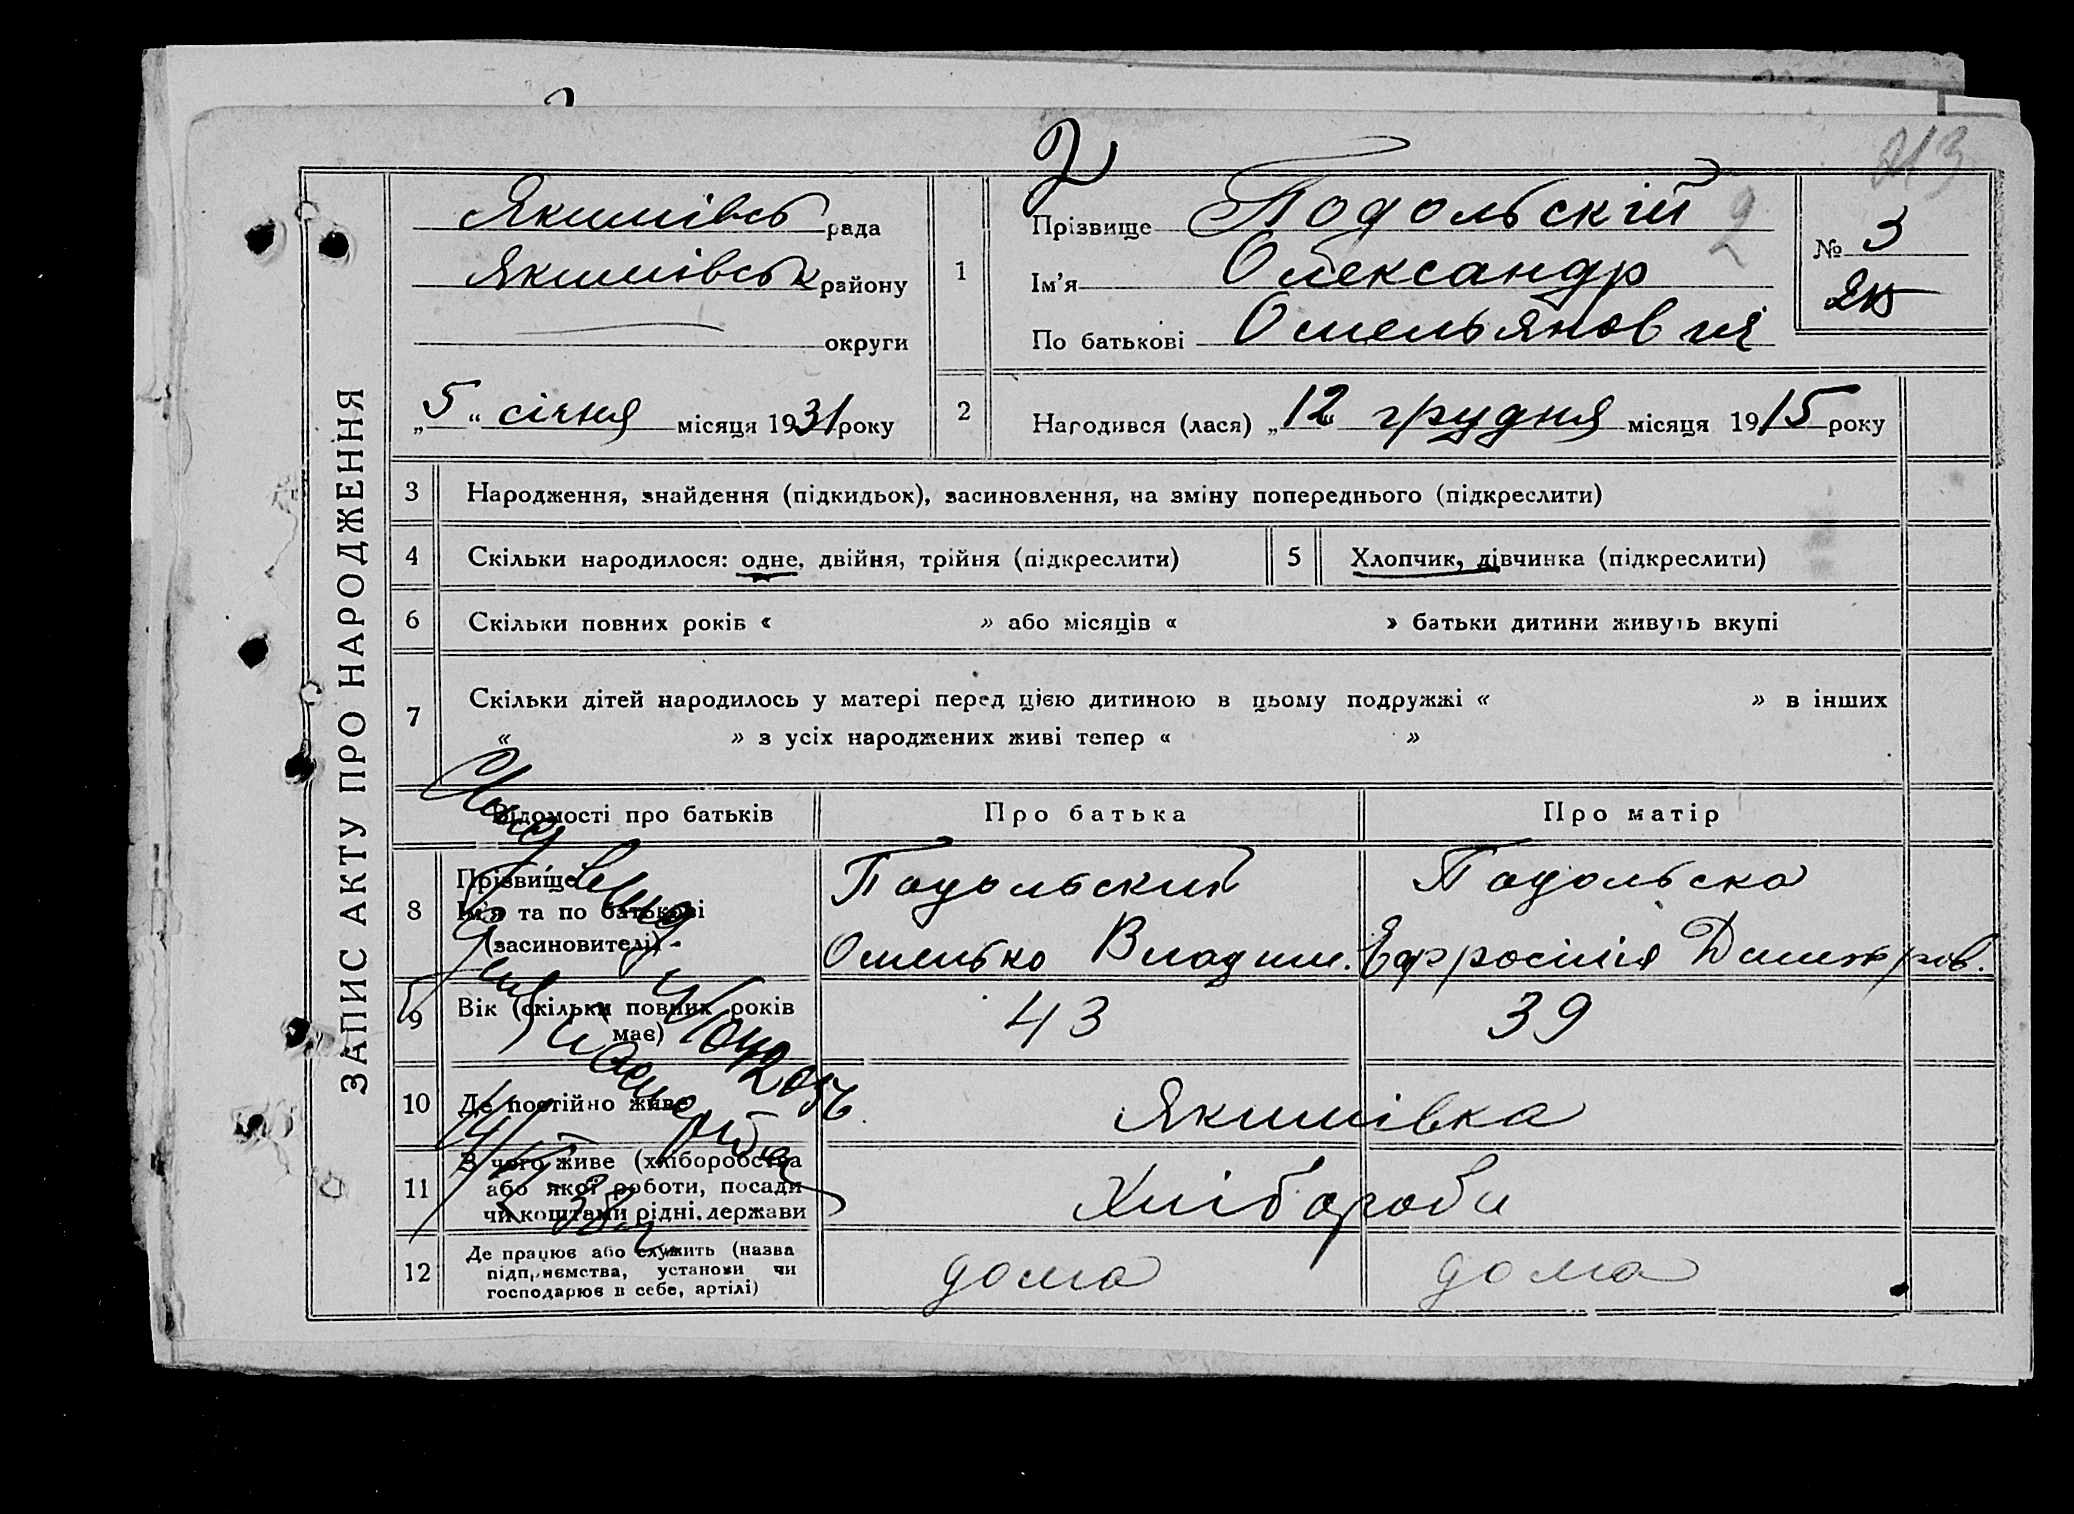 2
213
ЗАПИС АКТУ ПРО НАРОДЖЕННЯ
Якимівськ рада
Якимівськ району
округи
„5“ січня місяця 1931 року
1
Прізвище Подольскій
Ім'я Олександр
По батькові Омельянович
2
№ 3
2
Народився (лася) „12“ грудня місяця 1915 року
3 Народження, знайдення (підкидьок), засиновлення, на зміну попереднього (підкреслити)
4 Скільки народилося: одне, двійня, трійня (підкреслити)
5 Хлопчик, дівчинка (підкреслити)
6 Скільки повних років « » або місяців « » батьки дитини живуть вкупі
7 Скільки дітей народилось у матері перед цією дитиною в цьому подружжі « » в інших
« » з усіх народжених живі тепер « »
Відомості про батьків Про батька Про матір
8 Прізвище Подольский Подольска
Ім'я та по батькові
(засиновителі) Омелько Владим. Ефросинія Димитров.
9 Вік (скільки повних років має) 43 39
10 Де постійно живе Якимівка
11 З чого живе (хліборобства
або якої роботи, посади
чи коштами рідні, держави Хлібороби
12 Де працює або служить (назва
підприємства, установи чи
господарює в себе, артілі) дома дома